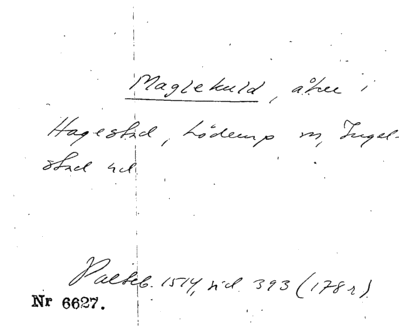 Maglekuld, åker i
Hagestad, Löderup sn, Ingel-
stad hd
Palteb. 1514, sid. 393 (178 r).
Nr 6627.